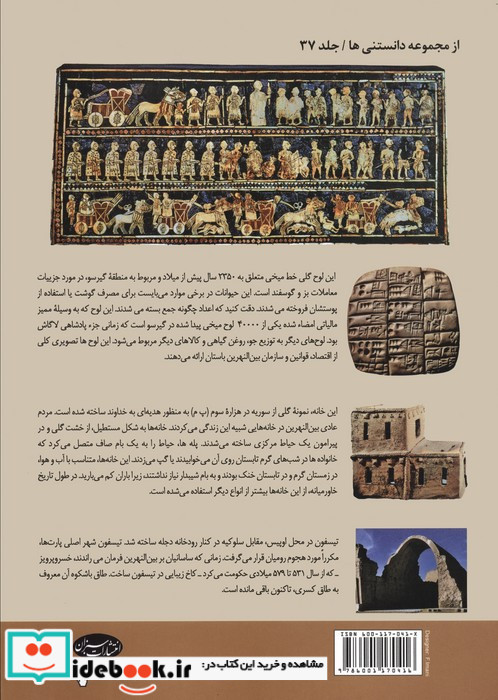 از مجموعه دانستنی ها / جلد ۳۷
این لوح گلی خط میخی متعلق به ۲۳۵۰ سال پیش از میلاد و مربوط به منطقهٔ گیرسو، در مورد جزییات
معاملات بز و گوسفند است. این حیوانات در برخی موارد می‌بایست برای مصرف گوشت یا استفاده از
پوستشان فروخته می شدند. دقت کنید که اعداد چگونه جمع بسته می شدند. این لوح که به وسیلهٔ ممیز
مالیاتی امضاء شده یکی از ۴۰۰۰۰ لوح میخی پیدا شده در گیرسو است که زمانی جزء پادشاهی لاگاش
بود. لوح‌های دیگر به توزیع جو، روغن گیاهی و کالاهای دیگر مربوط می‌شود. این لوح ها تصویری کلی
از اقتصاد، قوانین و سازمان بین‌النهرین باستان ارائه می‌دهند.
این خانه، نمونهٔ گلی از سوریه در هزارهٔ سوم (پ م) به منظور هدیه‌ای به خداوند ساخته شده است. مردم
عادی بین‌النهرین در خانه‌هایی شبیه این زندگی می‌کردند. خانه‌ها به شکل مستطیل، از خشت گلی و در
پیرامون یک حیاط مرکزی ساخته می‌شدند. پله ها، حیاط را به یک بام صاف متصل می‌کرد که
خانواده ها در شب‌های گرم تابستان روی آن می‌خوابیدند یا گپ می‌زدند. این خانه‌ها، متناسب با آب و هوا،
در زمستان گرم و در تابستان خنک بودند و به بام شیبدار نیاز نداشتند زیرا باران کم می‌بارید. در طول تاریخ
خاورمیانه، از این خانه‌ها بیشتر از انواع دیگر استفاده می‌شده است.
تیسفون در محل اوپیس، مقابل سلوکیه در کنار رودخانه دجله ساخته شد. تیسفون شهر اصلی پارت‌ها،
مکرراً مورد هجوم رومیان قرار می‌گرفت. زمانی که ساسانیان بر بین‌النهرین فرمان می راندند، خسروپرویز
ـ که از سال ۵۳۱ تا ۵۷۹ میلادی حکومت می‌کرد ـ کاخ زیبایی در تیسفون ساخت. طاق باشکوه آن معروف
به طاق کسری، تاکنون باقی مانده است.
ISBN 600-117-041-X
9786001170416
Designer: F.Imaani
مشاهده و خرید این کتاب در:
idebook.ir